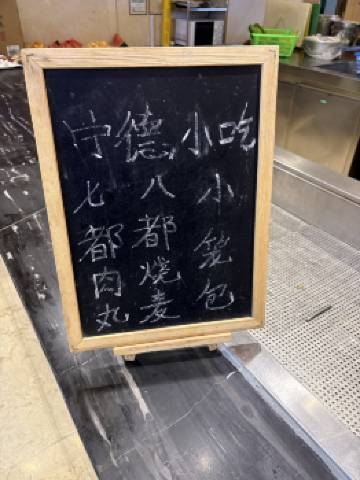 宁德小吃
七都肉丸
八都烧麦
小笼包